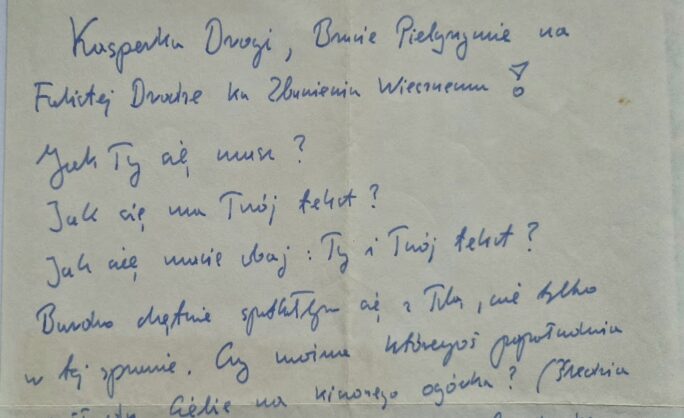 Kasperku Drogi, Bracie Pielgrzymie na
Falistej Drodze ku Zbawieniu Wiecznemu!
Jak Ty się masz?
Jak się ma Twój tekst?
Jak się macie obaj: Ty i Twój tekst?
Bardzo chętnie spotkałbym się z Tobą, nie tylko
w tej sprawie. Czy można któregoś popołudnia
Ciebie na kiszonego ogórka? (Średnia